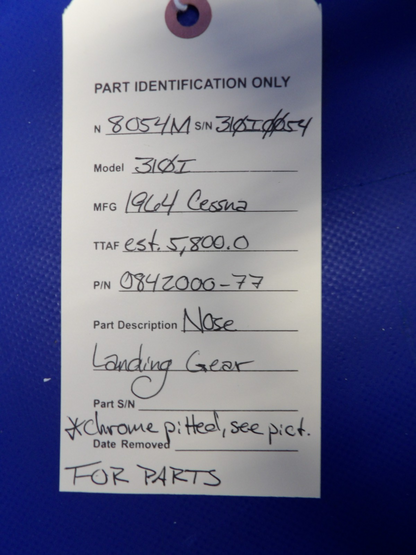 PART IDENTIFICATION ONLY
N 8054M S/N 310I0054
Model 310I
MFG 1964 Cessna
TTAF est. 5,800.0
P/N 0842000-77
Part Description Nose
Landing Gear
Part S/N
*chrome pitted, see pict.
Date Removed
FOR PARTS